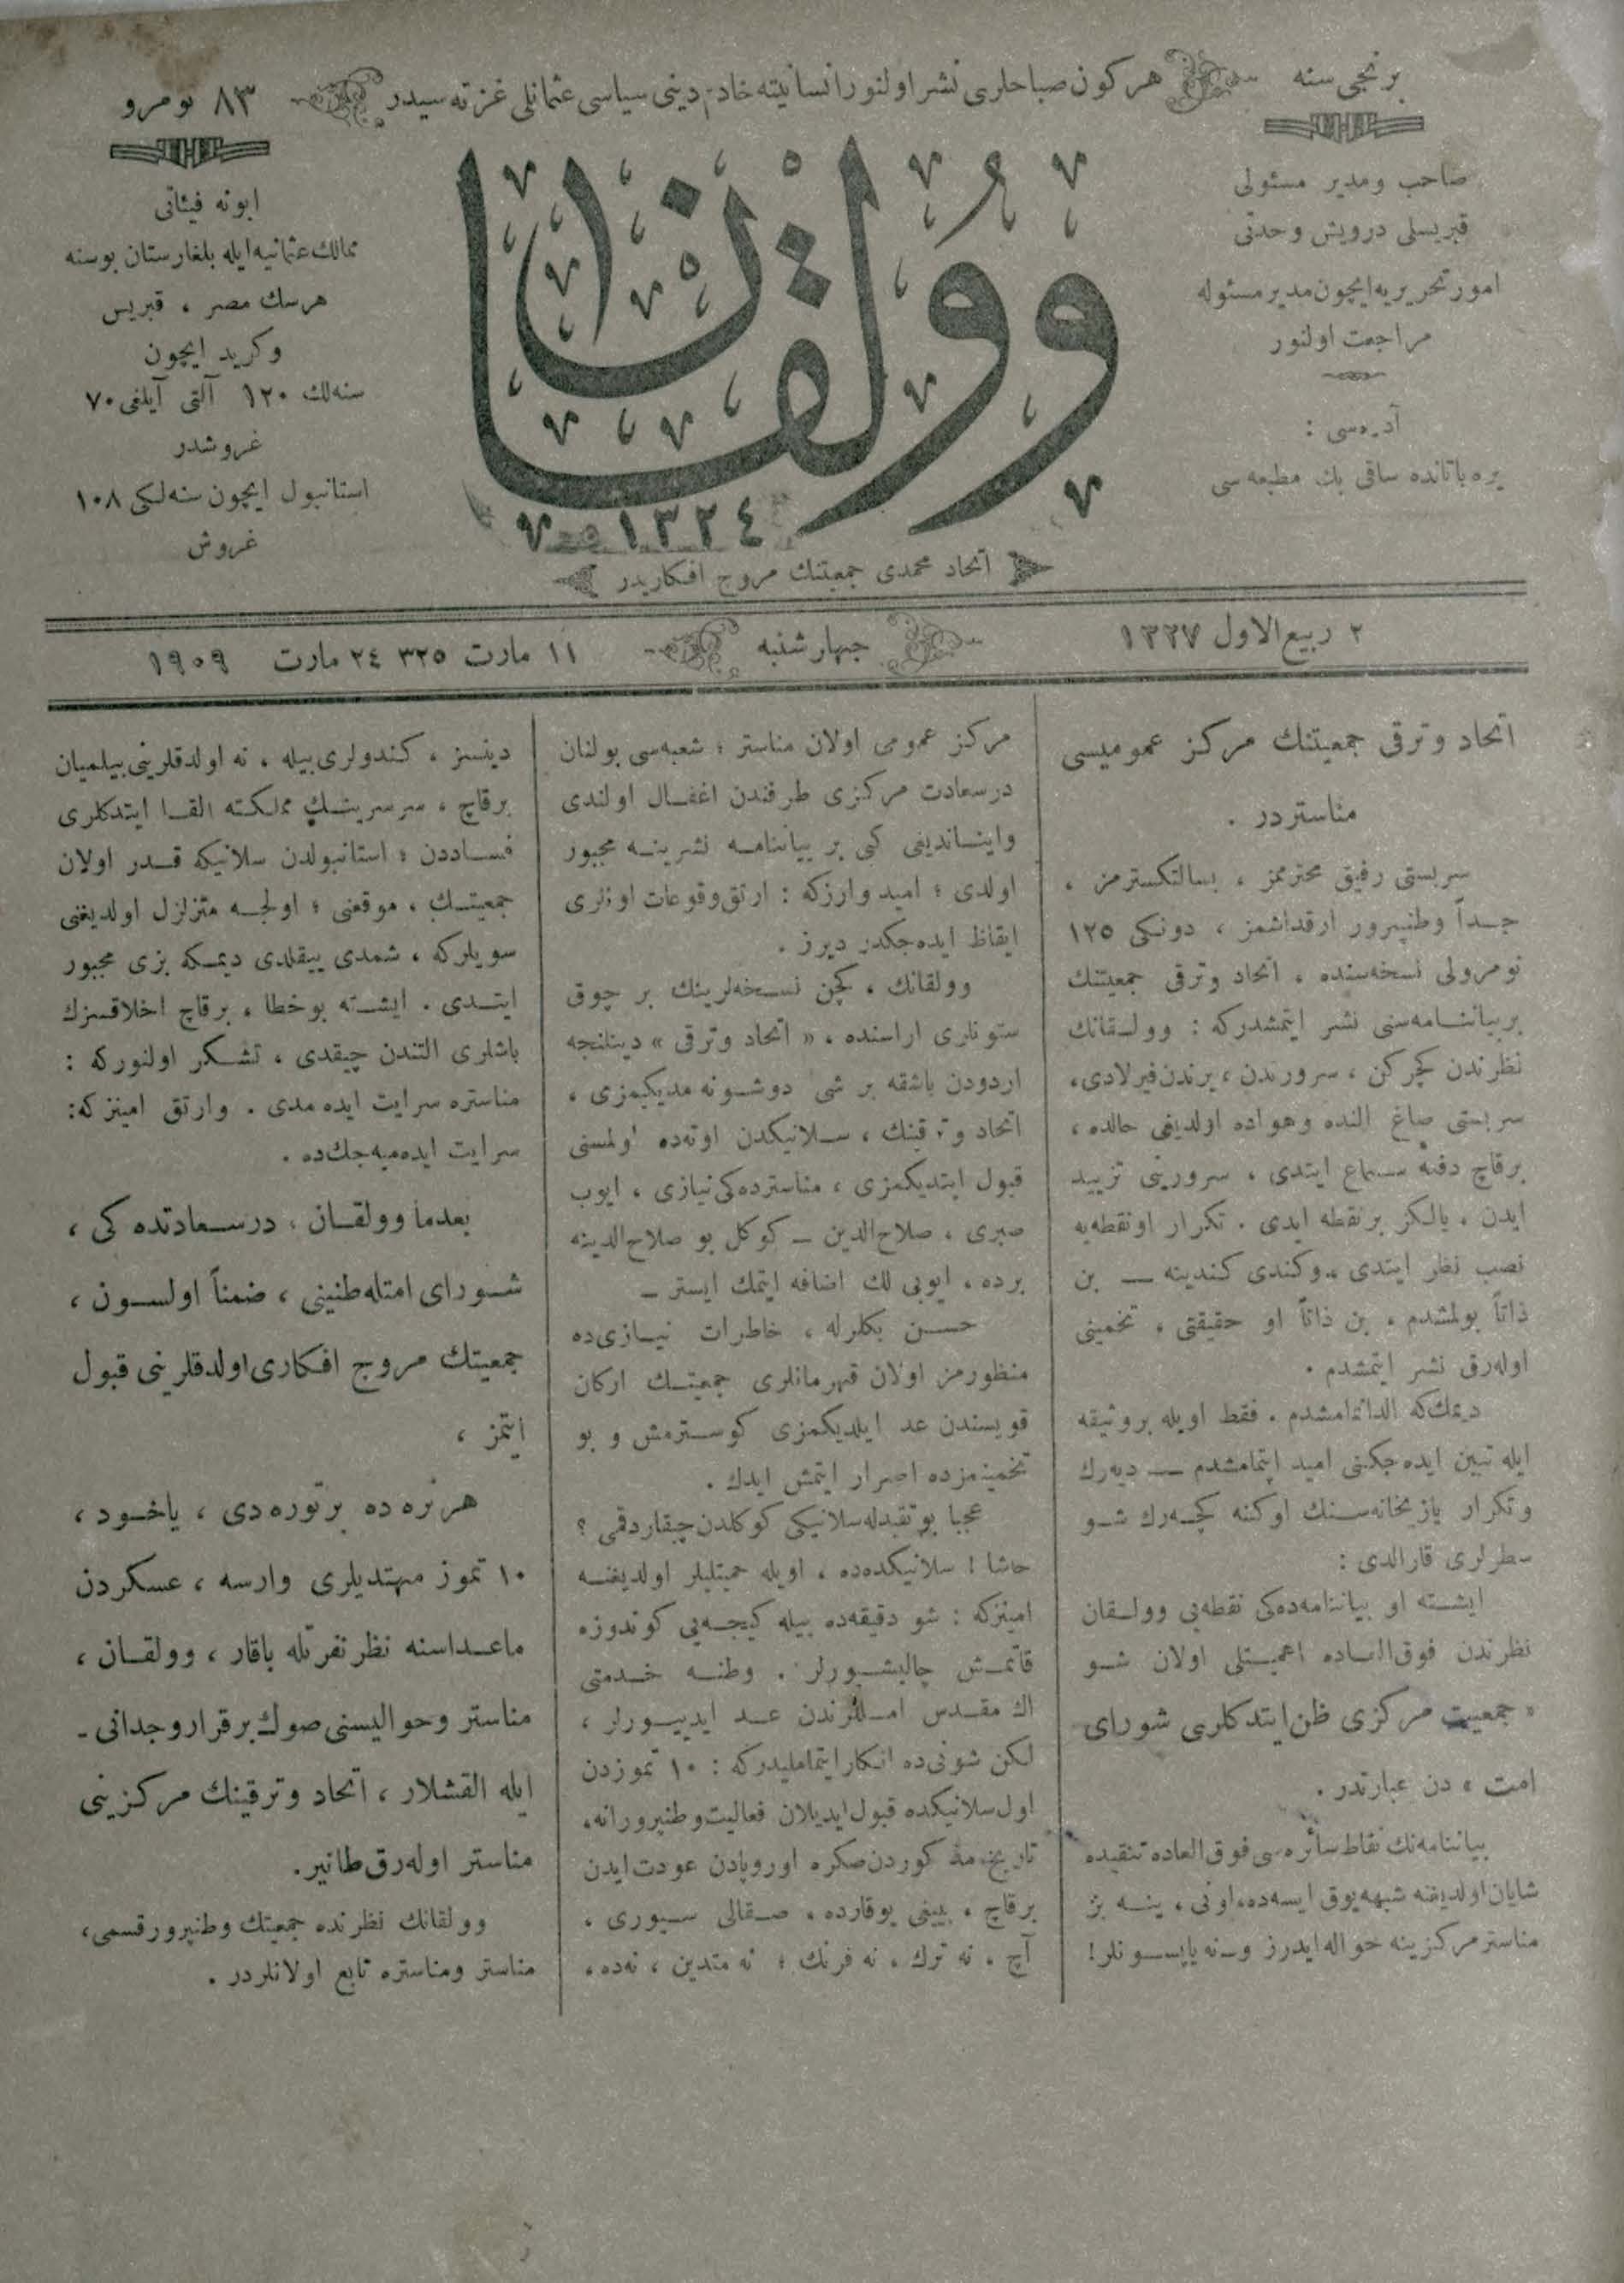 برنجی سنه
هركون صباحلری نشر اولنور انسانیته خادم دینی سیاسی عثمانلی غزته سیدر
نومرو ٨٣
صاحب ومدیر مسئولی
قبریسلی درویش وحدتی
امور تحریریه ایچون مدیر مسئوله
مراجعت اولنور
آدرەسی :
یره باتانده ساقی بك مطبعه سی
وولقان
١٣٢٤
اتحاد محمدی جمعیتنك مروج افكاریدر
ابونه فیئاتی
ممالك عثمانیه ایله بلغارستان بوسنه
هرسك مصر ، قبریس
وكرید ایچون
سنه لك ١٢٠ آلتی آیلغی ٧٠
غروشدر
استانبول ایچون سنه لكی ١٠٨
غروش
٢ ربیع الاول ١٣٢٧
چهارشنبه
١١ مارت ٣٢٥ ٢٤ مارت ١٩٠٩
اتحاد وترقی جمعیتنك مركز عمومیسی
مناستردر .
سربستی رفیق محترممز ، بسالتكسترمز ،
جداً وطنپرور ارقداشمز ، دونكی ١٢٥
نومرولی نسخه سنده ، اتحاد وترقی جمعیتنك
بربیاننامه سنی نشر ایتمشدركه : وولقانك
نظرندن كچركن ، سرورندن ، یرندن فیرلادی،
سربستی صاغ النده وهواده اولدیغی حالده ،
برقاچ دفعه سماع ایتدی ، سرورینی تزیید
ایدن ، یالكز بر نقطه ایدی . تكرار اونقطه یه
نصب نظر ایتدی ـ وكندی كندینه — بن
ذاتاً بولمشدم ، بن ذاتاً او حقیقتی ، تخمینی
اوله رق نشر ایتمشدم .
دیمك كه الدانمامشدم . فقط اویله بروثیقه
ایله تبین ایده جكنی امید ایتمامشدم — دیه رك
وتكرار یازیخانه سنك اوكنه كچه رك شو
سطرلری قارالدی :
ایشته او بیاننامه ده كی نقطه یی وولقان
نظرندن فوق العاده اهمیتلی اولان شو
« جمعیت مركزی ظن ایتدكلری شورای
امت » دن عبارتدر .
بیاننامه نك نقاط سائره سی فوق العاده تنقیده
شایان اولدیغنه شبهه یوق ایسه ده، اونی ، ینه بز
مناستر مركزینه حواله ایدرز ونه یاپسونلر!
مركز عمومی اولان مناستر ؛ شعبه سی بولنان
درسعادت مركزی طرفندن اغفال اولندی
واینـاندیغی كبی بر بیاننامه نشرینه مجبور
اولدی ؛ امید وارزكه : ارتق وقوعات اونلری
ایقاظ ایده جكدر دیرز .
وولقانك ، كچن نسخه لرینك بر چوق
ستونلری اراسنده ، « اتحاد وترقی » دینلنجه
اردودن باشقه بر شی دوشونه مدیكمزی ،
اتحاد وترقینك ، سلانیكدن اوته ده اولمسنی
قبول ایتدیكمزی ، مناسترده كی نیازی ، ایوب
صبری ، صلاح الدین — كوكل بو صلاح الدینه
برده ، ایوبی لك اضافه ایتمك ایستر —
حسن بكلرله ، خاطرات نیازی ده
منظورمز اولان قهرمانلری جمعیتك اركان
قویسندن عد ایلدیكمزی كوسترمش و بو
تخمینمزده اصرار ایتمش ایدك .
عجبا بو تنقیدله سلانیكی كوكلدن چیقاردقمی ؟
حاشا ! سلانیكده ده ، اویله حمیتلیلر اولدیغنه
امینزكه : شو دقیقه ده بیله كیجه یی كوندوزه
قاتمش چالیشیورلر . وطنه خدمتی
اك مقدس امللرندن عد ایدییورلر ،
لكن شونی ده انكار ایتمامیلیدركه : ١٠ تموزدن
اول سلانیكده قبول ایدیلان فعالیت وطنپرورانه،
صكره اوروپادن عودت ایدن
برقاچ ، بیینی یوقارده ، صقالی سیوری ،
آچ ، نه ترك ، نه فرنك ؛ نه متدین ، نه ده ،
دینسز ، كندولری بیله ، نه اولدقلرینی بیلمیان
برقاچ ، سرسرینك مملكته القا ایتدكلری
فساددن ؛ استانبولدن سلانیكه قدر اولان
جمعیتك ، موقعنی ؛ اولجه متزلزل اولدیغنی
سویلركه ، شمدی ییقلدی دیمكه بزی مجبور
ایتدی . ایشته بوخطا ، برقاچ اخلاقسزك
باشلری التندن چیقدی ، تشكر اولنوركه :
مناستره سرایت ایده مدی . وارتق امینزكه:
سرایت ایده میه جك ده .
بعدما وولقان ، درسعادتده كی ،
شورای امتله طنینی ، ضمناً اولسون ،
جمعیتك مروج افكاری اولدقلرینی قبول
ایتمز ،
هر نره ده بر توره دی ، یاخود ،
١٠ تموز مهتدیلری وارسه ، عسكردن
ماعداسنه نظر نفرتله باقار ، وولقان ،
مناستر وحوالیسنی صوك برقرار وجدانی ـ
ایله القشلار ، اتحاد وترقینك مركزینی
مناستر اوله رق طانیر.
وولقانك نظرنده جمعیتك وطنپرور قسمی،
مناستر ومناستره تابع اولانلردر .